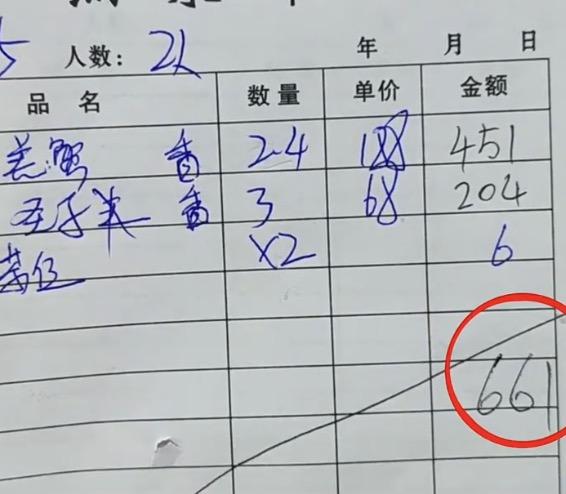 人数: 2人 年 月 日
品名 数量 单价 金额
羔蟹 香 2.4 188 451
香 3 68 204
茶位 X2 6
661